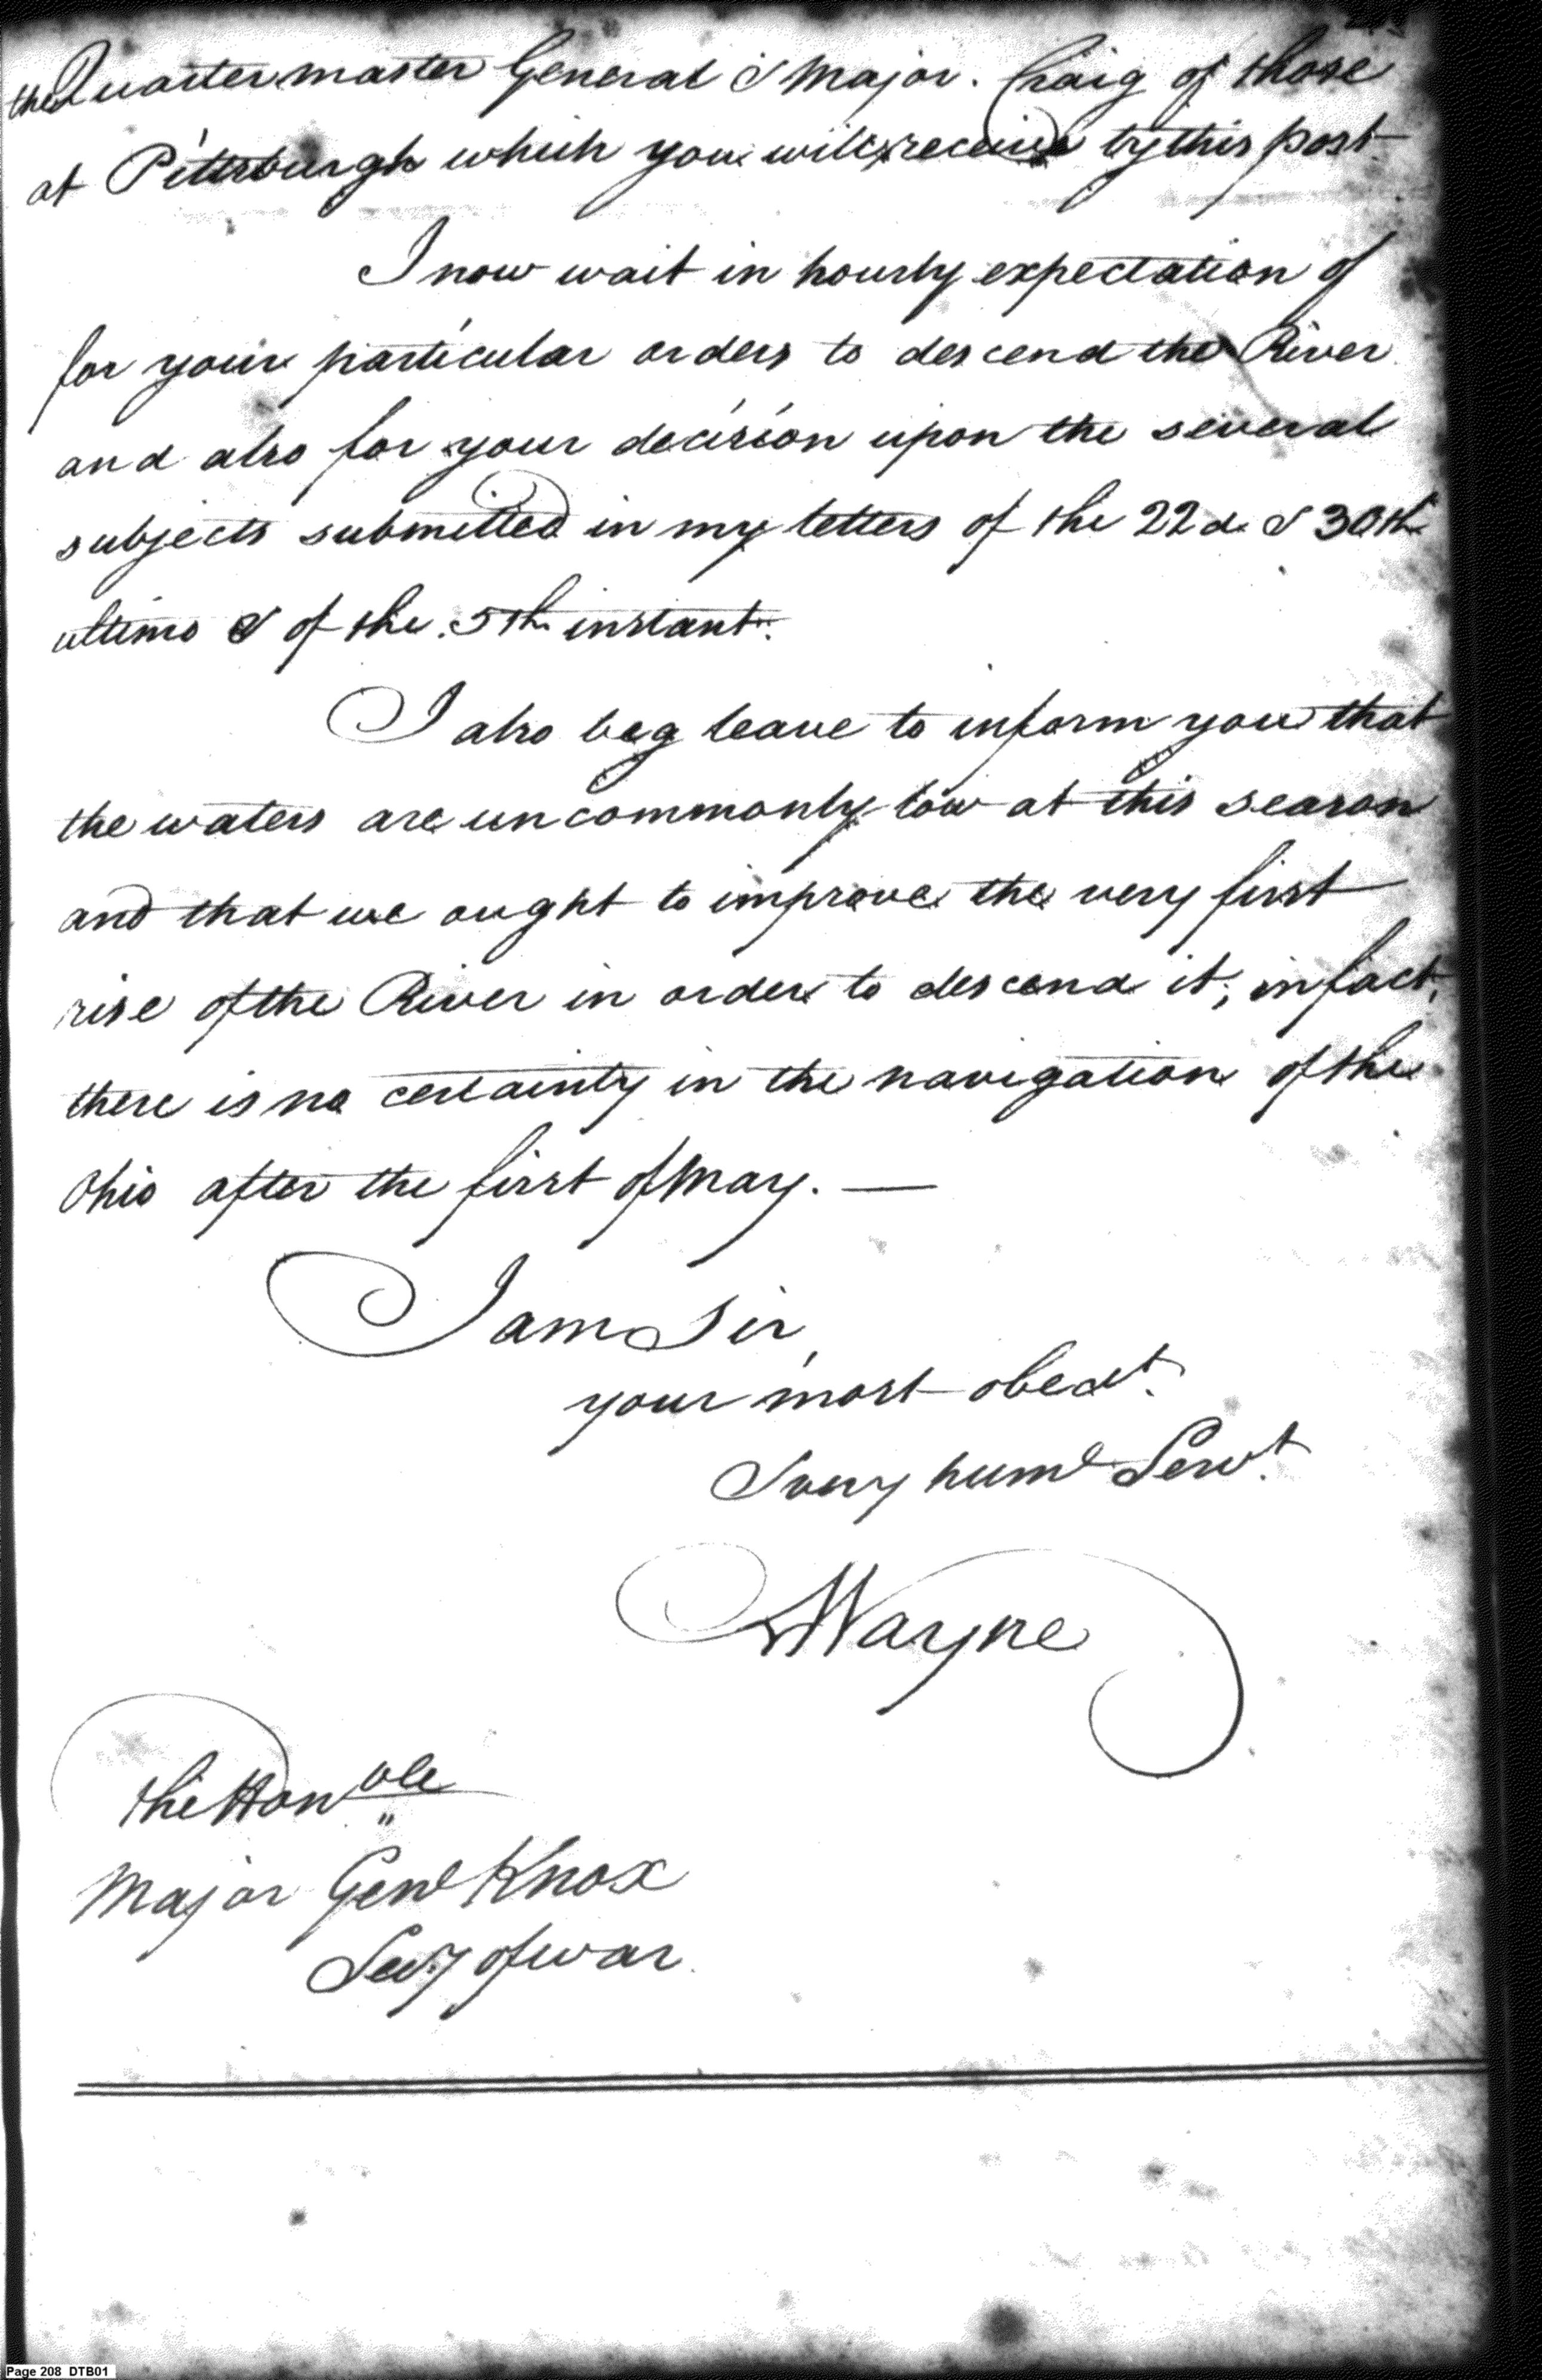 the Quartermaster General & Major. Craig of those
at Pittsburgh which you will receive by this post
I now wait in hourly expectation of
for your particular orders to descend the River
and also for your decision upon the several
subjects submitted in my letters of the 22d. & 30th
ultimo & of the 5th instant.
I also beg leave to inform you that
the waters are uncommonly low at this season
and that we ought to improve the very first
rise of the River in order to descend it; in fact,
there is no certainty in the navigation of the
Ohio after the first of May. —
I am Sir,
your most obedt.
& very huml Servt.
A Wayne
The Honble
Major Genl Knox
Secy of war.
Page 208 DTB01